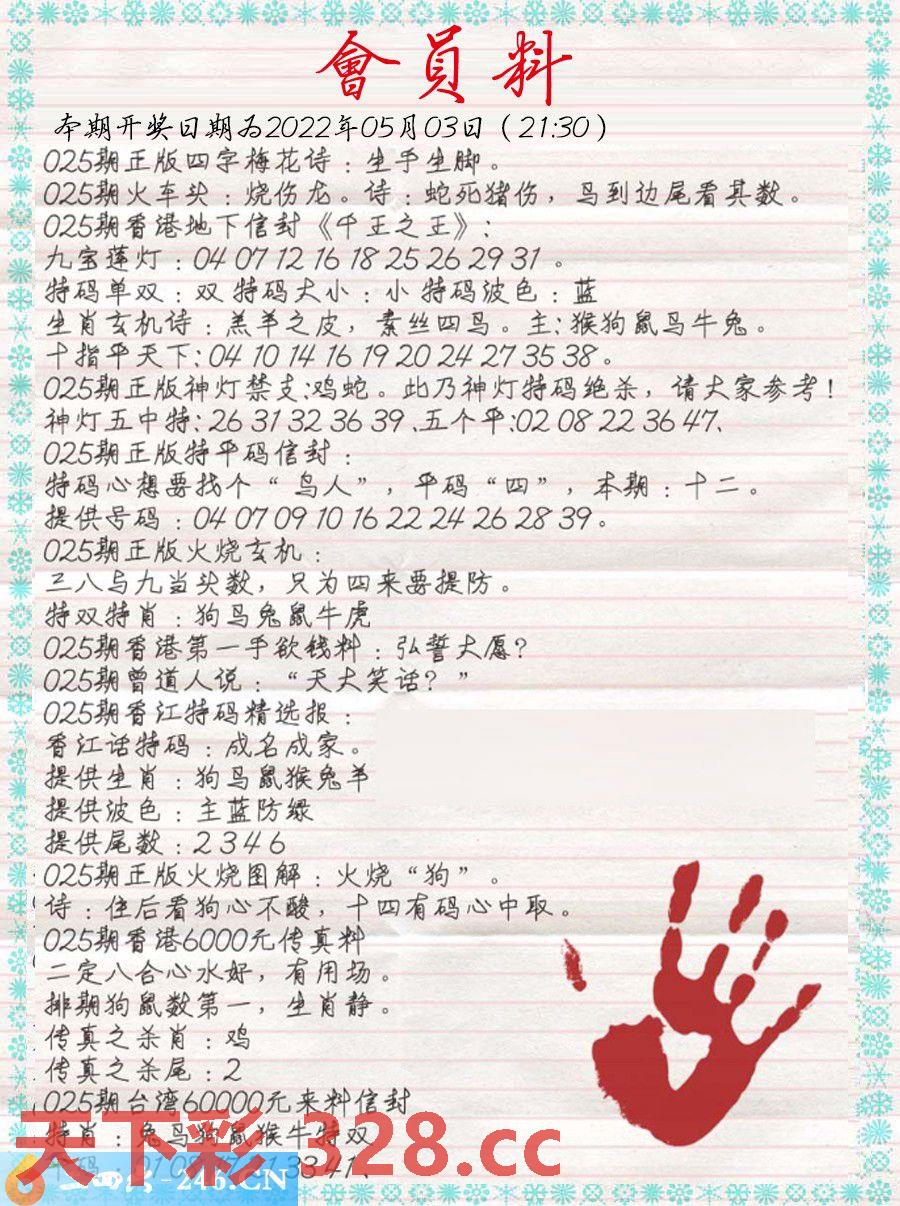 會員料
本期开奖日期为2022年05月03日（21:30）
025期正版四字梅花诗：生手生脚。
025期火车头：烧伤龙。诗：蛇死猪伤，鸟到边尾看其数。
025期香港地下信封《千王之王》：
九宝莲灯：04 07 12 16 18 25 26 29 31 。
特码单双：双 特码大小：小 特码波色：蓝
生肖玄机诗：羔羊之皮，素丝四鸟。主：猴狗鼠鸟牛兔。
十指平天下：04 10 14 16 19 20 24 27 35 38。
025期正版神灯禁支：鸡蛇。此乃神灯特码绝杀，请大家参考！
神灯五中特：26 31 32 36 39 、五个平：02 08 22 36 47、
025期正版特平码信封：
特码心想要找个“鸟人”，平码“四”，本期：十二。
提供号码：04 07 09 10 16 22 24 26 28 39。
025期正版火烧玄机：
三八与九当头数，只为四来要提防。
特双特肖：狗鸟兔鼠牛虎
025期香港第一手欲钱料：弘誓大愿？
025期曾道人说：“天大笑话？”
025期香江特码精选报：
香江话特码：成名成家。
提供生肖：狗鸟鼠猴兔羊
提供波色：主蓝防绿
提供尾数：2 3 4 6
025期正版火烧图解：火烧“狗”。
诗：住后看狗心不酸，十四有码心中取。
025期香港6000元传真料
二定八合心水好，有用场。
排期狗鼠数第一，生肖静。
传真之杀肖：鸡
传真之杀尾：2
025期台湾60000元来料信封
特肖：兔鸟狗鼠猴牛特双
天下彩 328.cc
-246.CN